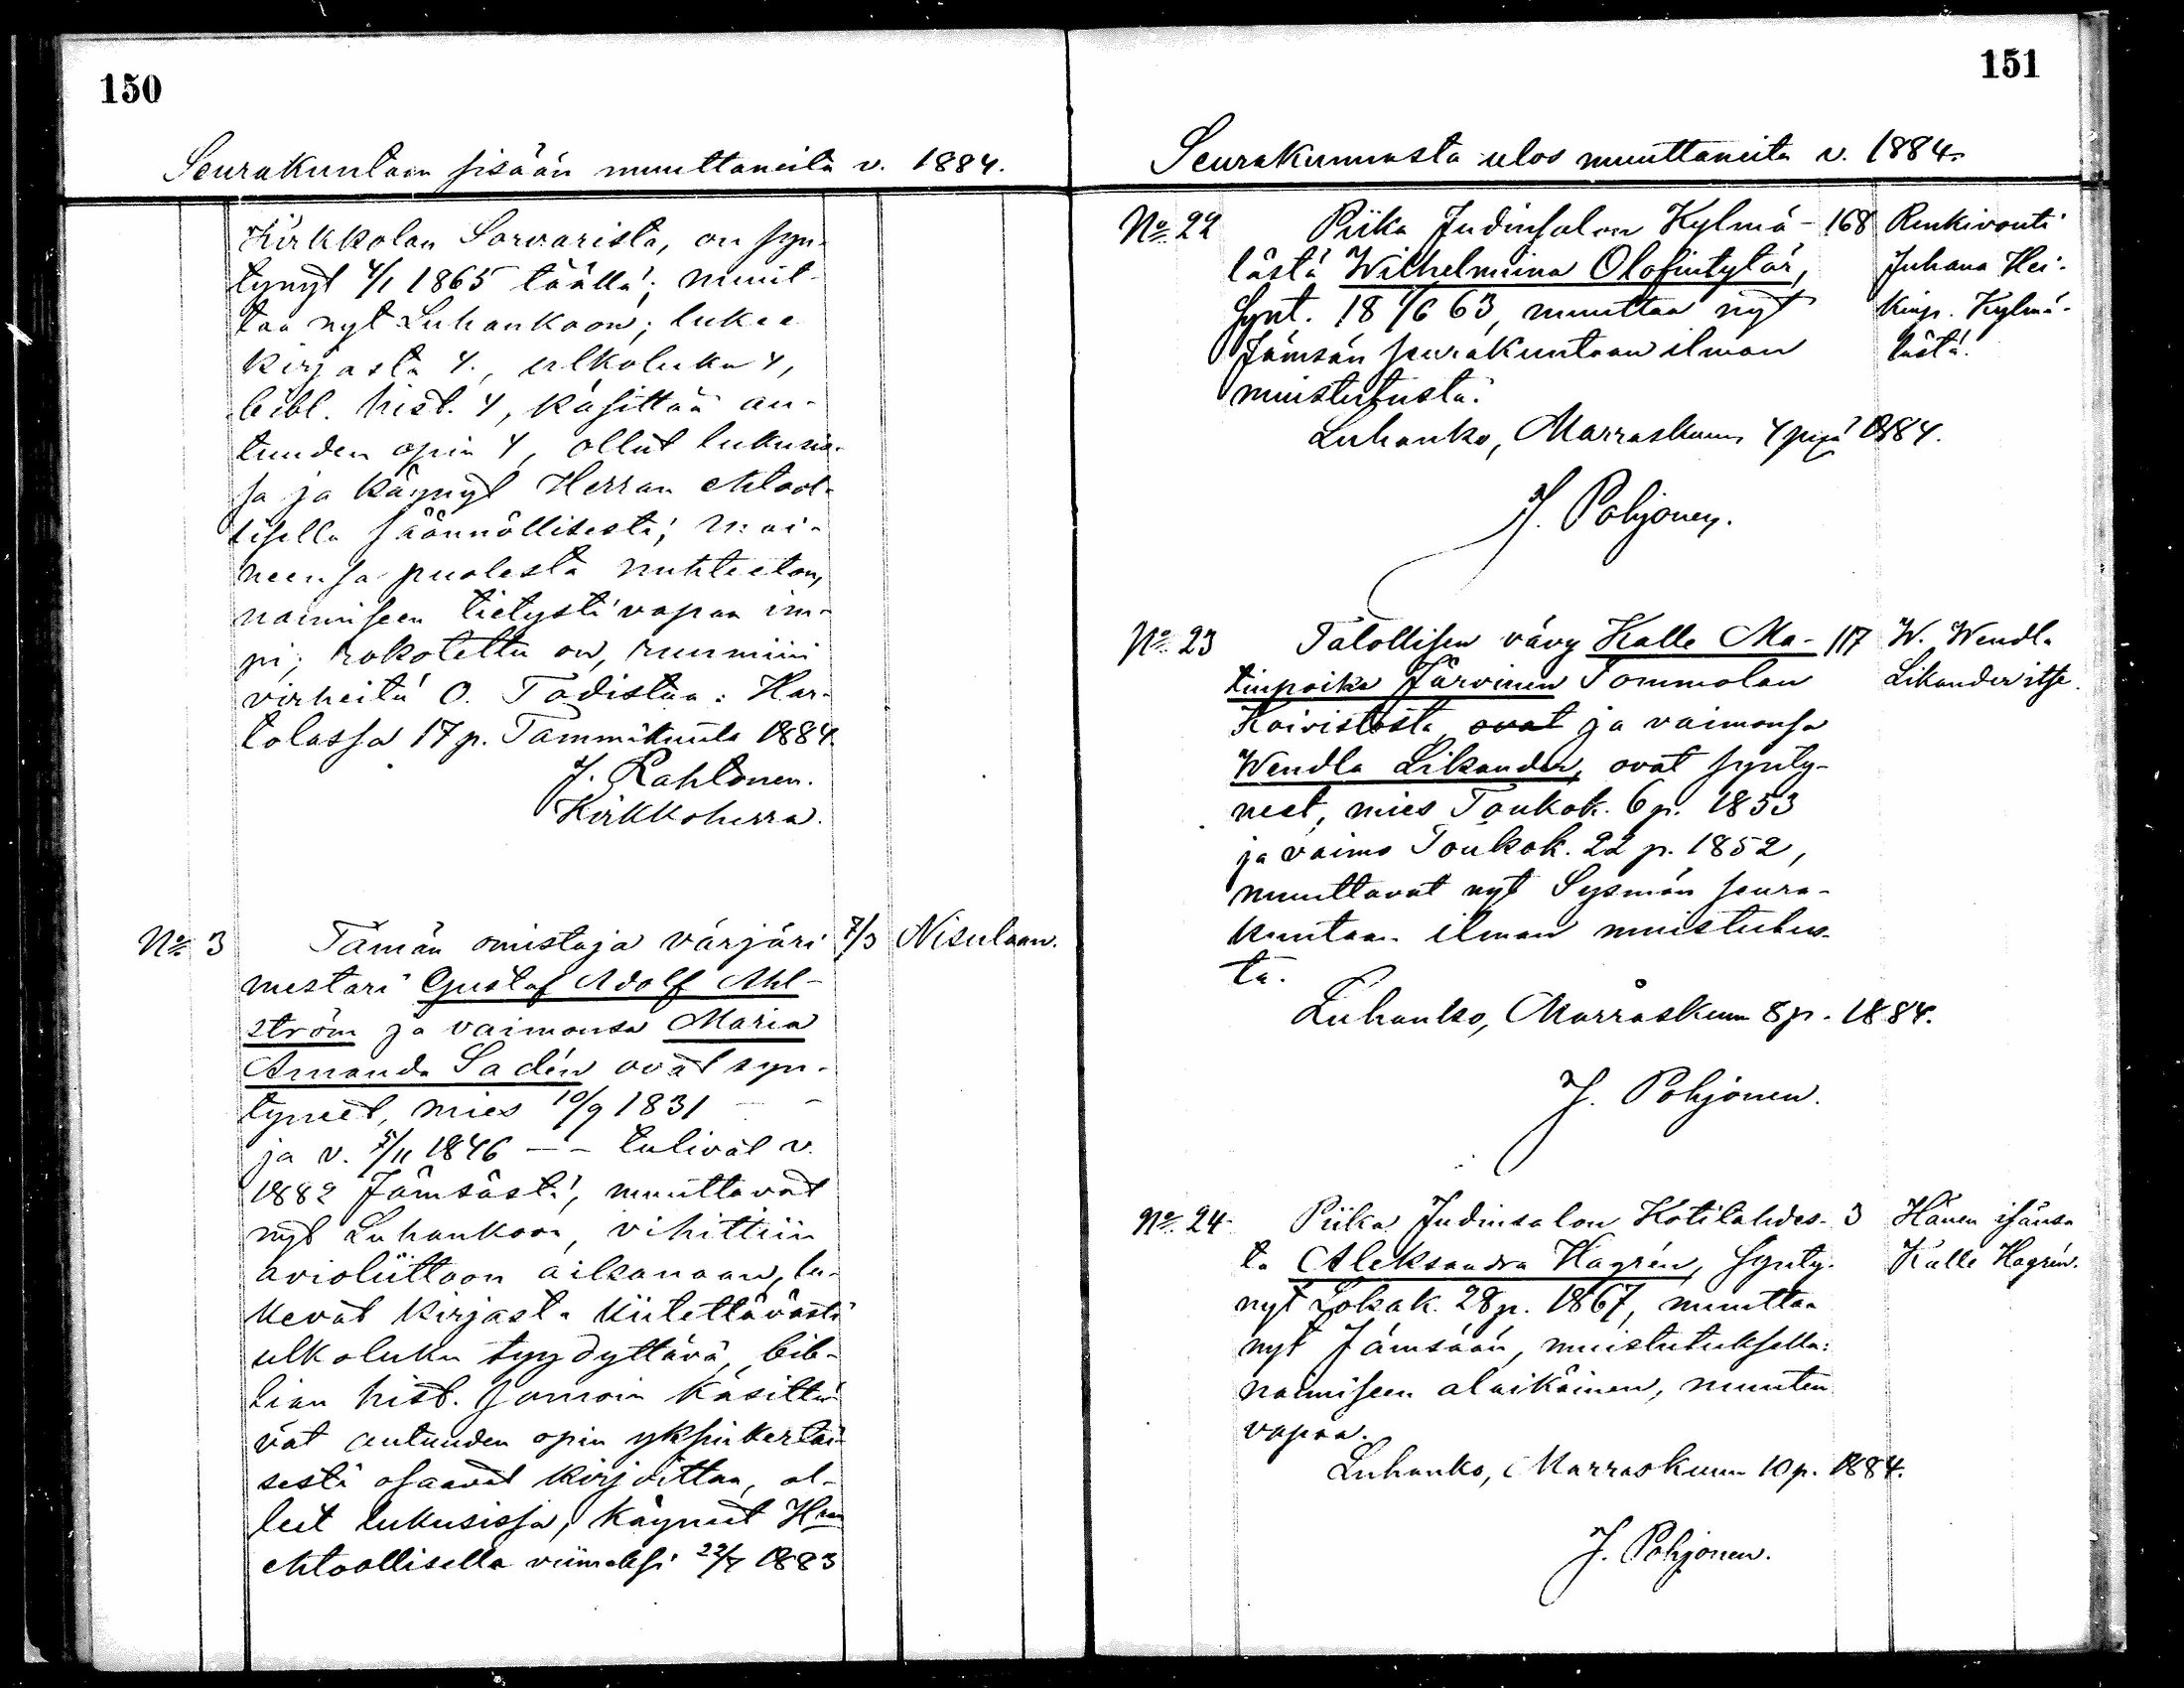 150
Seurakuntaan sisään muuttaneita v. 1884.
Kirkkolan Sorvarista, on syn-
tynyt 4/1 1865 täällä; muut-
taa nyt Luhankoon; lukee
kirjasta 4., ulkoluku 4,
bibl. hist. 4, käsittää au-
tuuden opin 4, ollut lukusis-
sa ja käynyt Herran ehtool-
lisella säännöllisesti; mai-
neensa puolesta nuhteeton,
naimiseen tietysti vapaa im-
pi; rokotettu on, ruumiin
virheitä 0. Todistaa: Har-
tolassa 17 p. Tammikuuta 1884.
J. Rahtonen.
Kirkkoherra.
No 3 Tämän omistaja värjäri 7/3 Nisulaan.
mestari Gustaf Adolf Ahl-
ström ja vaimonsa Maria
Amanda Sadén ovat syn-
tyneet, mies 10/9 1831 - -
ja v. 5/11 1846 - - tulivat v.
1882 Jämsästä, muuttavat
nyt Luhankoon, vihittiin
avioliittoon aikanaan, lu-
kevat kirjasta kiitettävästi
ulkoluku tyydyttävä, bib-
lian hist. samoin käsittä-
vät autuuden opin yksinkertai-
sesti osaavat kirjoittaa, ol-
leet lukusissa, käyneet Hran
ehtoollisella viimeksi 22/7 1883
151
Seurakunnasta ulos muuttaneita v. 1884.
No 22 Piika Judinsalon Kylmä- 168 Renkivouti
lästä Wilhelmiina Olofintytär, Juhana Hei-
Synt. 18 1/6 63, muuttaa nyt kinp. Kylmä-
Jämsän seurakuntaan ilman lästä.
muistutusta.
Luhanko, Marraskuun 4 pnä 1884.
J. Pohjonen.
No 23 Talollisen vävy Kalle Ma- 117 W. Wendla
tinpoika Järvinen Tommolan Likander itse.
Koivistosta ovat ja vaimonsa
Wendla Likander, ovat synty-
neet, mies Toukok. 6 p. 1853
ja vaimo Toukok. 22 p. 1852,
muuttavat nyt Sysmän seura-
kuntaan ilman muistutus-
ta.
Luhanko, Marraskuun 8 p. 1884.
J. Pohjonen.
No 24 Piika Judinsalon Kotilahdes- 3 Hänen isänsä
ta Aleksandra Hagrén, synty- Kalle Hagrén.
nyt Lokak. 28 p. 1867, muuttaa
nyt Jämsään, muistutuksella:
naimiseen alaikäinen, muuten
vapaa.
Luhanko, Marraskuun 10 p. 1884.
J. Pohjonen.